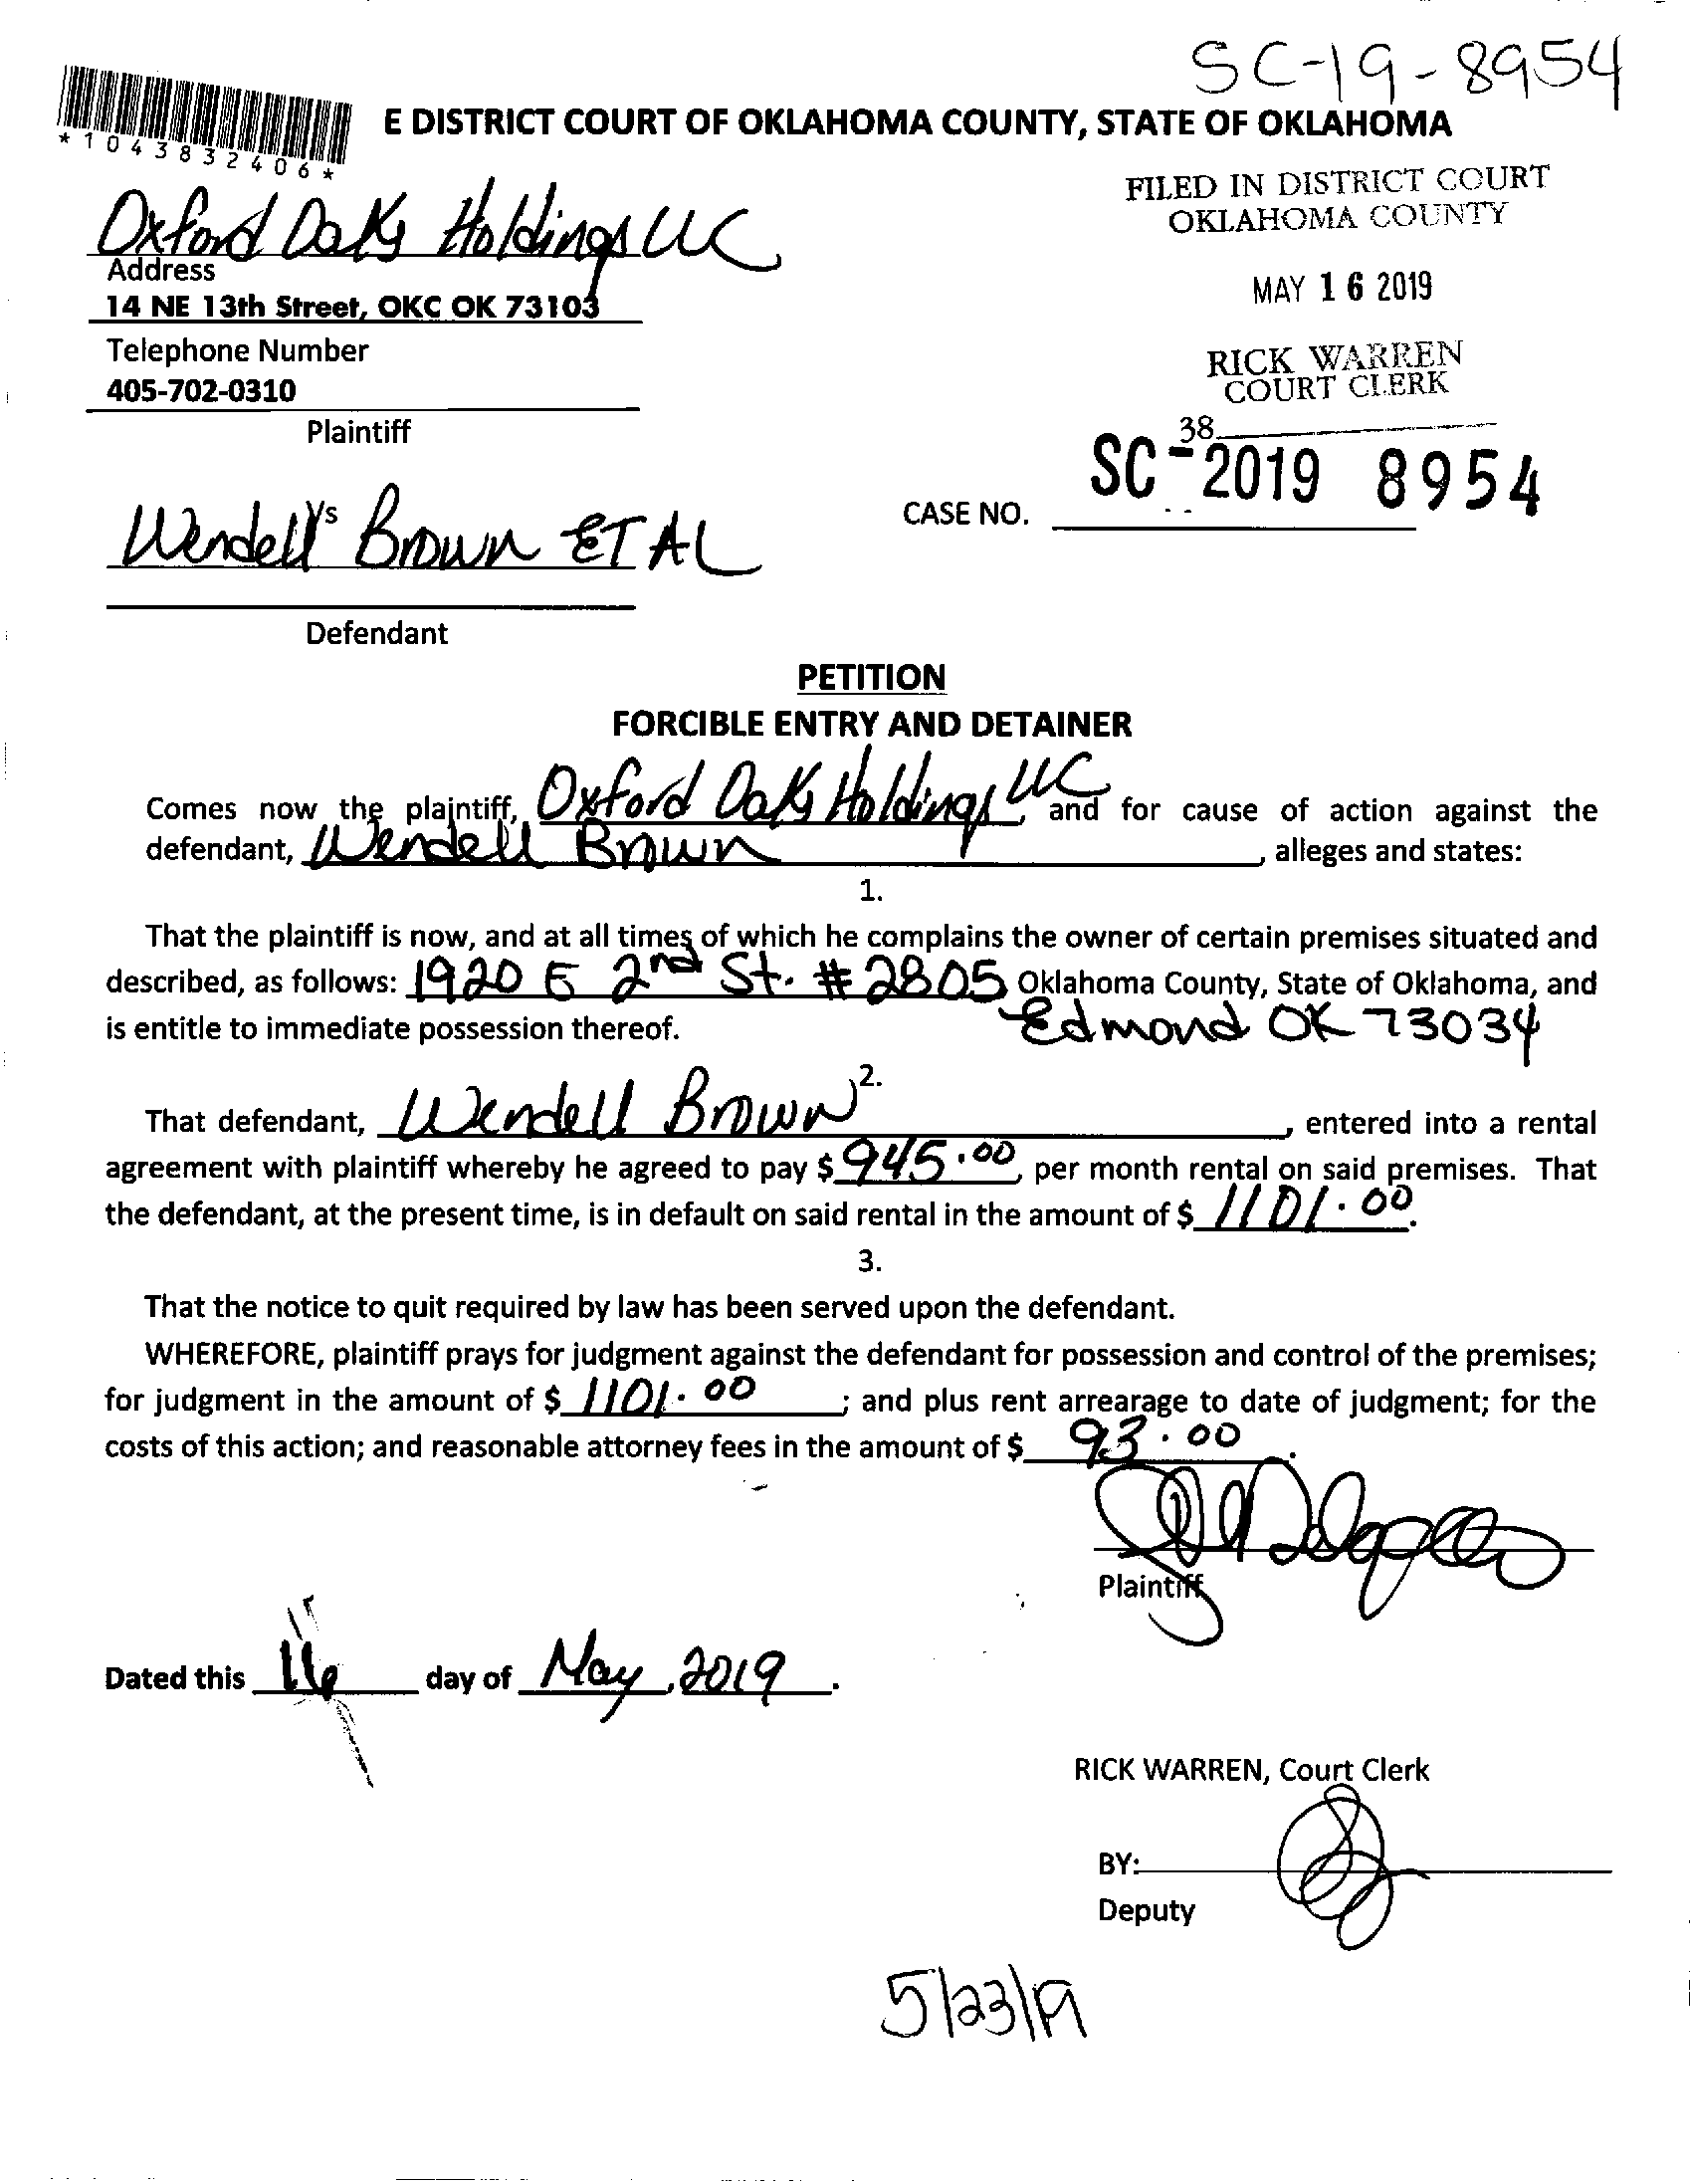 SC-19-8954
*1043832406*
E DISTRICT COURT OF OKLAHOMA COUNTY, STATE OF OKLAHOMA
FILED IN DISTRICT COURT
OKLAHOMA COUNTY
MAY 16 2019
RICK WARREN
COURT CLERK
38
Oxford Oaks Holdings LLC
Address
14 NE 13th Street, OKC OK 73103
Telephone Number
405-702-0310
Plaintiff
Vs
Wendell Brown ET AL
CASE NO. SC-2019 8954
Defendant
PETITION
FORCIBLE ENTRY AND DETAINER
Comes now the plaintiff, Oxford Oaks Holdings LLC, and for cause of action against the
defendant, Wendell Brown, alleges and states:
1.
That the plaintiff is now, and at all times of which he complains the owner of certain premises situated and
described, as follows: 1920 E 2nd St. #2805 Oklahoma County, State of Oklahoma, and
is entitle to immediate possession thereof. Edmond OK 73034
2.
That defendant, Wendell Brown, entered into a rental
agreement with plaintiff whereby he agreed to pay $ 945.00, per month rental on said premises. That
the defendant, at the present time, is in default on said rental in the amount of $ 1101.00.
3.
That the notice to quit required by law has been served upon the defendant.
WHEREFORE, plaintiff prays for judgment against the defendant for possession and control of the premises;
for judgment in the amount of $ 1101.00; and plus rent arrearage to date of judgment; for the
costs of this action; and reasonable attorney fees in the amount of $ 93.00.
Plaintiff
Dated this 16 day of May, 2019.
RICK WARREN, Court Clerk
BY:
Deputy
5/23/19